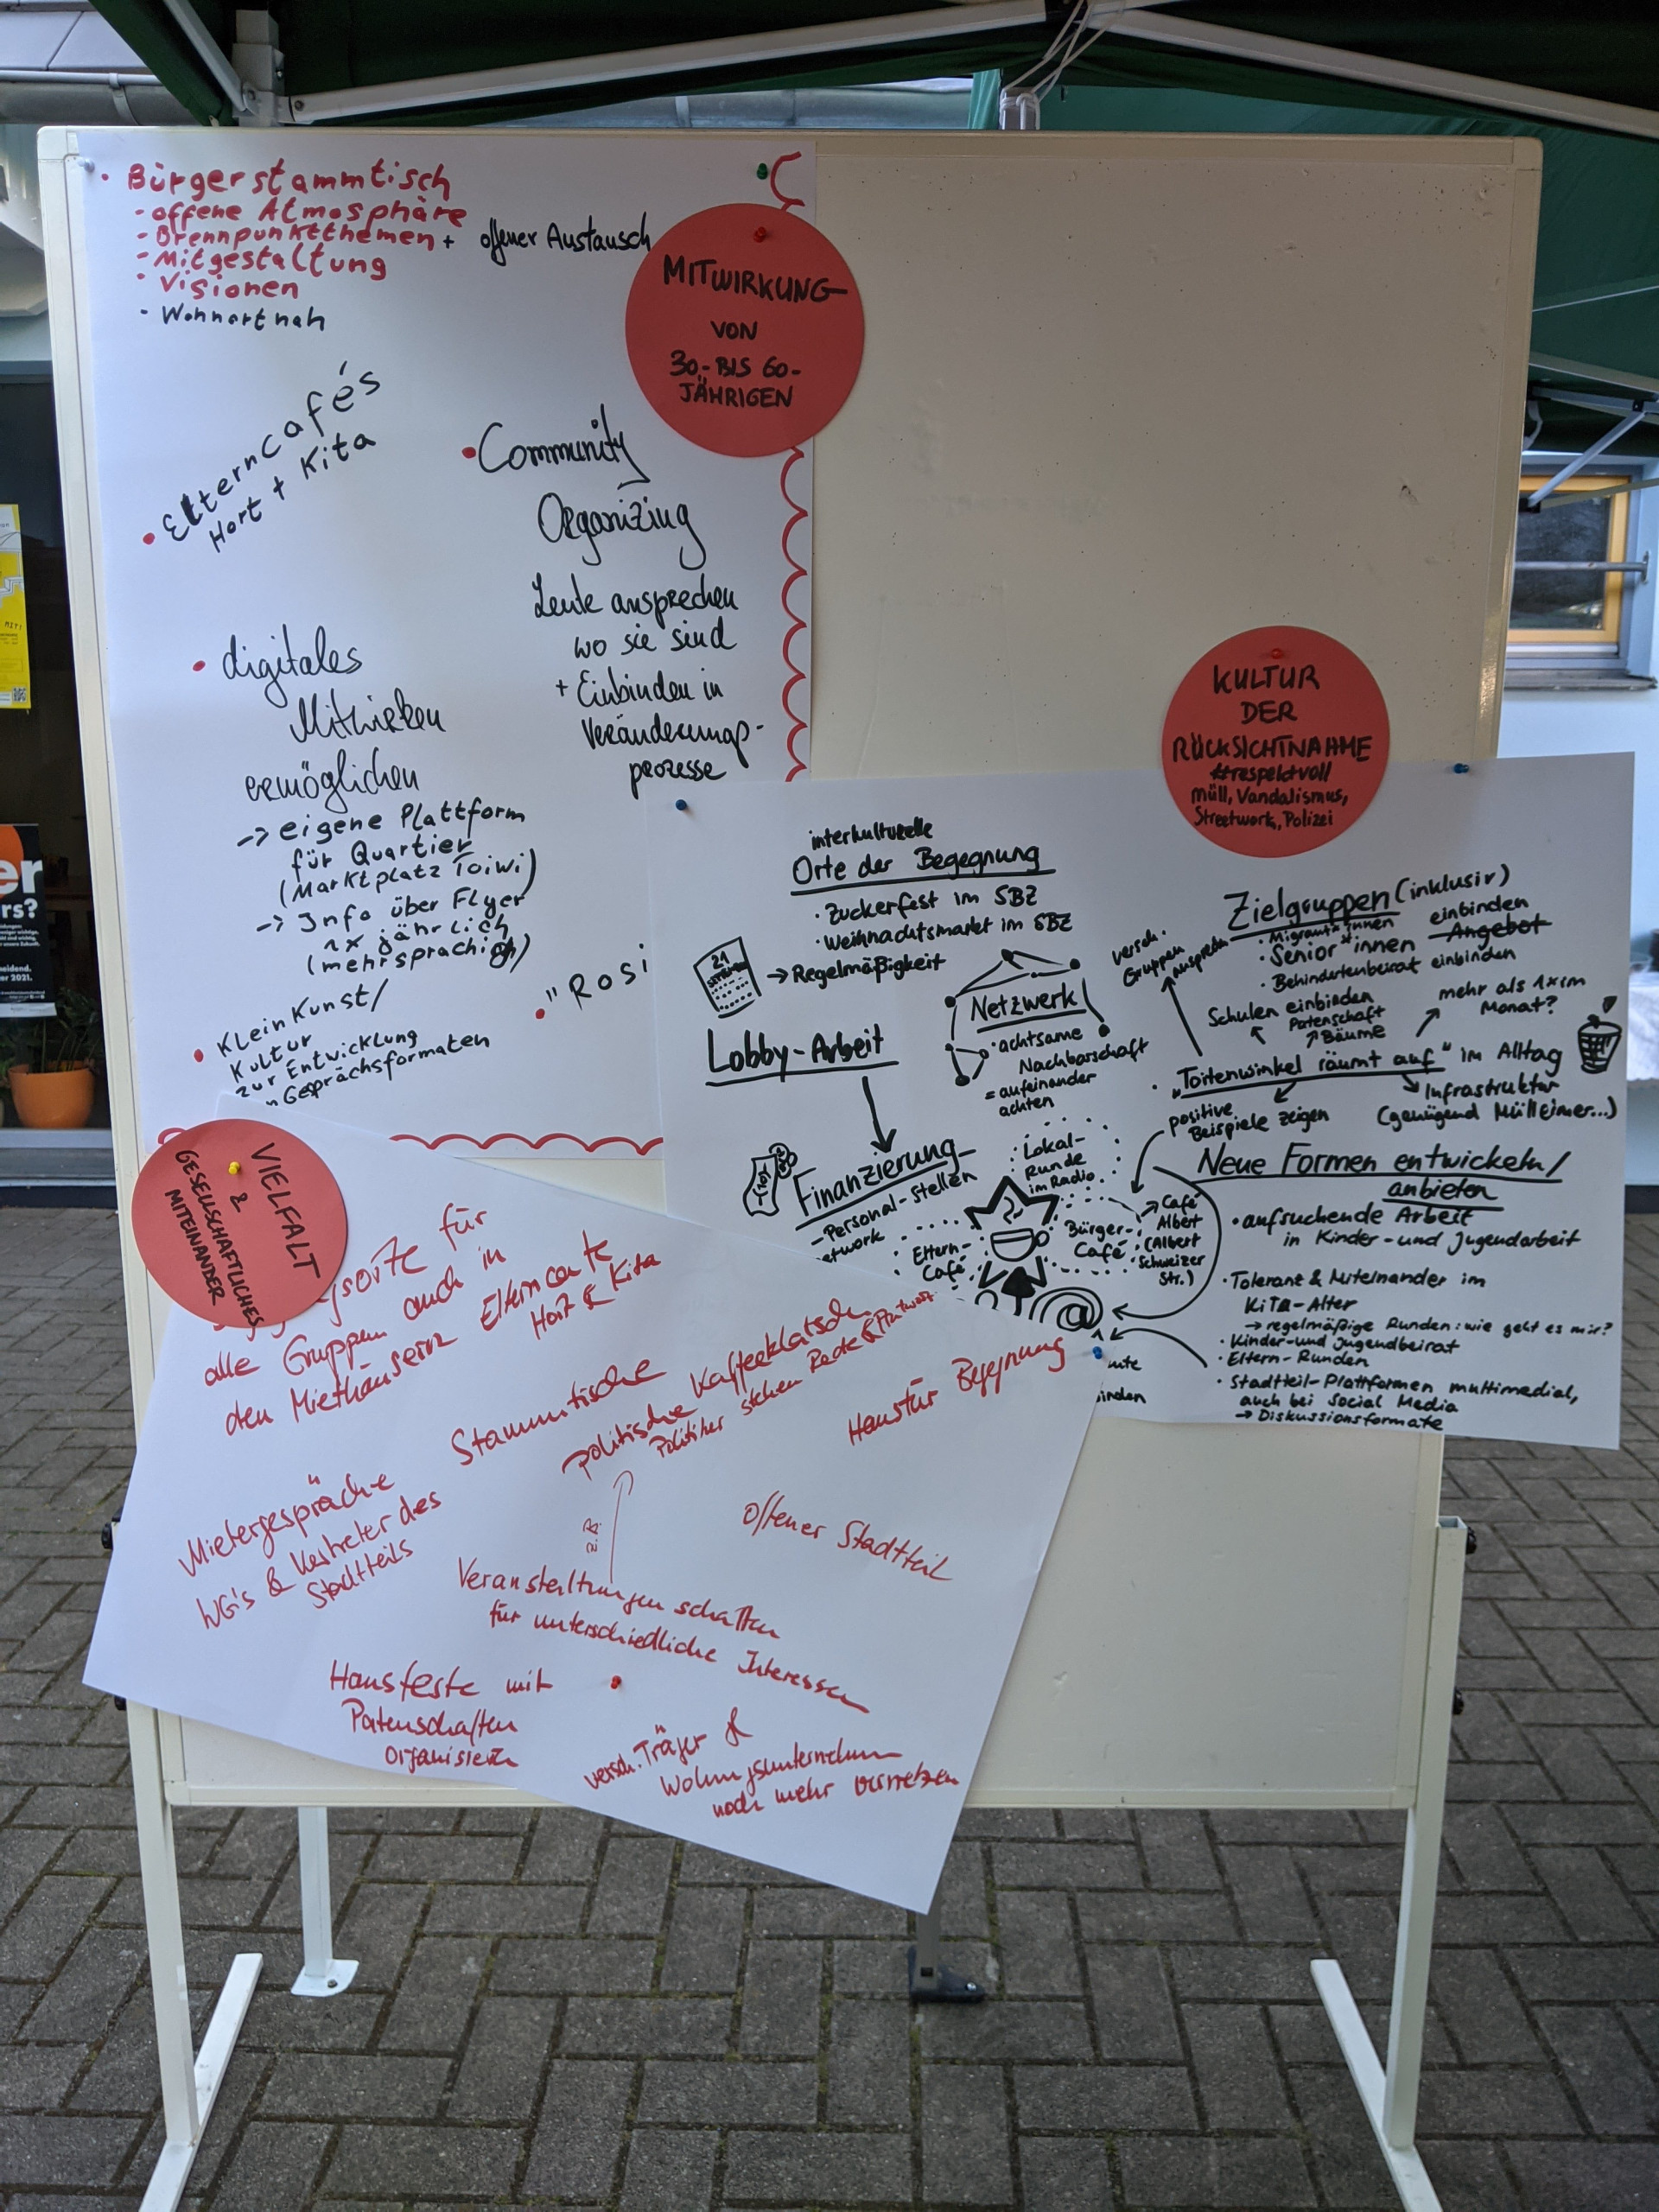 • Bürgerstammtisch
- offene Atmosphäre
- Brennpunktthemen + offener Austausch
- Mitgestaltung
- Visionen
- Wohnortnah
MITWIRKUNG
VON
30,- BIS 60-
JÄHRIGEN
• Elterncafés
Hort + Kita
• Community
Organizing
Leute ansprechen
wo sie sind
+ Einbinden in
Veränderungs-
prozesse
• digitales
Mitwirken
ermöglichen
-> eigene Plattform
für Quartier
(Marktplatz Toiwi)
-> Info über Flyer
1x jährlich
(mehrsprachig)
• "Rosi
• KleinKunst/
Kultur
zur Entwicklung
Gesprächsformaten
KULTUR
DER
RÜCKSICHTNAHME
#respektvoll
Müll, Vandalismus,
Streetwork, Polizei
interkulturelle
Orte der Begegnung
• Zuckerfest im SBZ
• Weihnachtsmarkt im SBZ
21
→ Regelmäßigkeit
Netzwerk
• achtsame
Nachbarschaft
= aufeinander
achten
Lobby-Arbeit
Finanzierung
- Personal-Stellen
etwork
Lokal-
Runde
im Radio
Eltern-
Café
Bürger-
Café
→ Café
Albert
(Albert
Schweizer
Str.)
@
Zielgruppen (inklusiv)
• Migrant*innen einbinden
• Senior*innen Angebot
• Behindertenbeirat einbinden
versch.
Gruppen ansprechen
Schulen einbinden
Patenschaft
Bäume
mehr als 1x im
Monat?
• "Toitenwinkel räumt auf" im Alltag
positive
Beispiele zeigen
Infrastruktur
(genügend Mülleimer...)
Neue Formen entwickeln/
anbieten
• aufsuchende Arbeit
in Kinder- und Jugendarbeit
• Toleranz & Miteinander im
KiTa-Alter
→ regelmäßige Runden: wie geht es mir?
• Kinder- und Jugendbeirat
• Eltern-Runden
• Stadtteil-Plattformen multimedial,
auch bei Social Media
→ Diskussionsformate
VIELFALT
&
GESELLSCHAFTLICHES
MITEINANDER
gsorte für
alle Gruppen auch in
den Miethäusern
Elterncafe
Hort & Kita
Stammtische
politische Kaffeeklatsch
Politiker stehen Rede & Antwort
Haustür Begegnung
Mietergespräche
WG's & Vertreter des
Stadtteils
z.B.
Offener Stadtteil
Veranstaltungen schaffen
für unterschiedliche Interessen
Hausfeste mit
Patenschaften
organisieren
versch. Träger &
Wohnungsunternehmen
noch mehr vernetzen